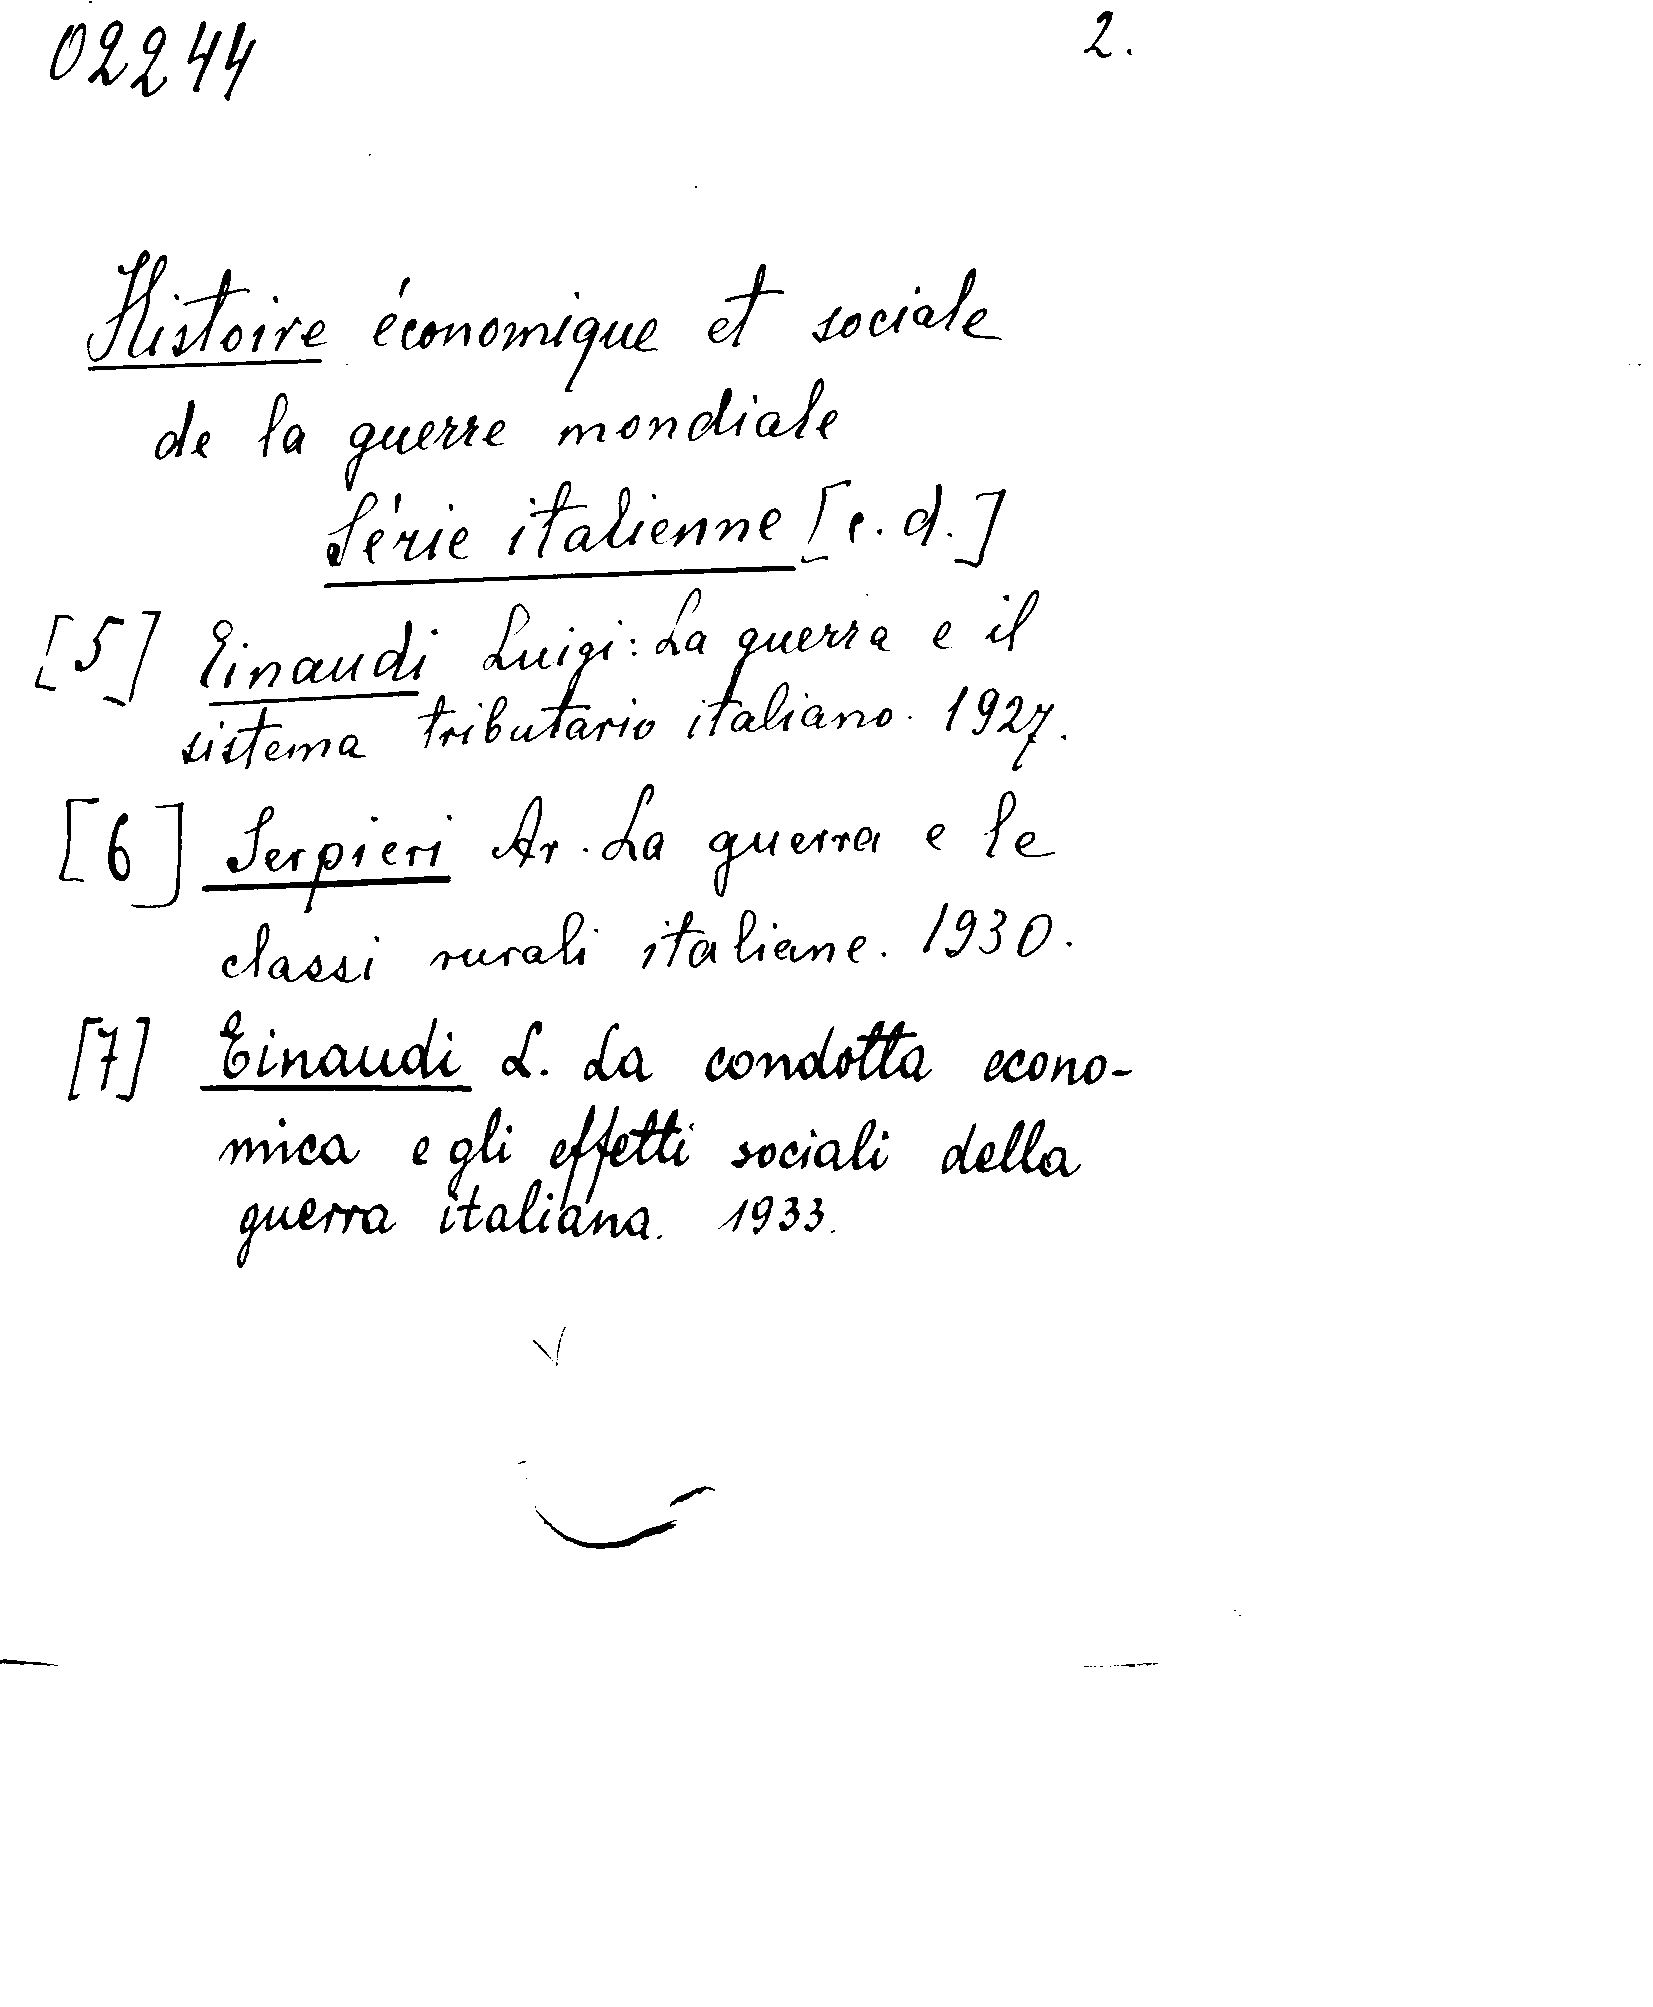 02244 2.
Histoire économique et sociale
de la guerre mondiale
Série italienne [e. d.]
[5] Einaudi Luigi: La guerra e il
sistema tributario italiano. 1927.
[6] Serpieri Ar. La guerra e le
classi rurali italiane. 1930.
[7] Einaudi L. La condotta econo-
mica e gli effetti sociali della
guerra italiana. 1933.